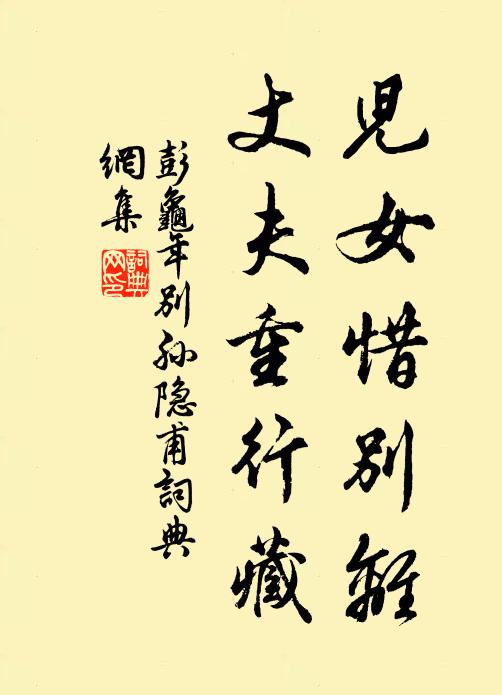 兒女惜別離
丈夫重行藏
彭龜年別孫隐甫詞典
網集
詞典
网印